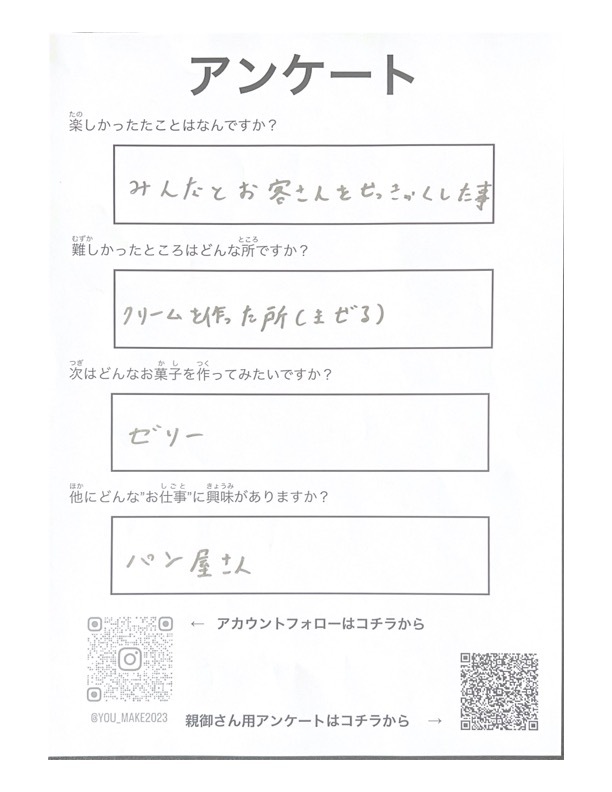 アンケート
たの
楽しかったたことはなんですか？
みんなとお客さんをせっきゃくした事
むずか ところ
難しかったところはどんな所ですか？
クリームを作った所(まぜる)
つぎ かし つく
次はどんなお菓子を作ってみたいですか？
ゼリー
ほか しごと きょうみ
他にどんな”お仕事”に興味がありますか？
パン屋さん
← アカウントフォローはコチラから
@YOU_MAKE2023
親御さん用アンケートはコチラから →